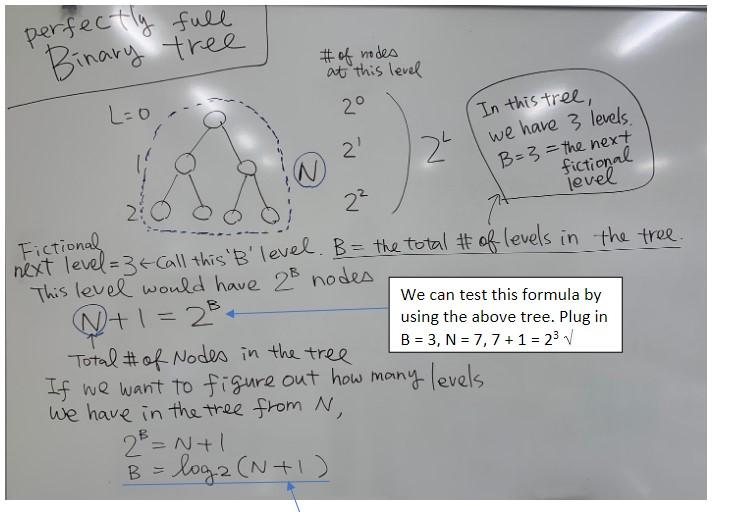 perfectly full
Binary tree
# of nodes
at this level
L=0
1
2
N
2⁰
2¹
2²
2ᴸ
In this tree,
we have 3 levels.
B=3 = the next
fictional
level
Fictional
next level=3 ← Call this 'B' level. B = the total # of levels in the tree.
This level would have 2ᴮ nodes
N+1 = 2ᴮ
We can test this formula by
using the above tree. Plug in
B = 3, N = 7, 7 + 1 = 2³ √
Total # of Nodes in the tree
If we want to figure out how many levels
we have in the tree from N,
2ᴮ = N+1
B = log₂(N+1)